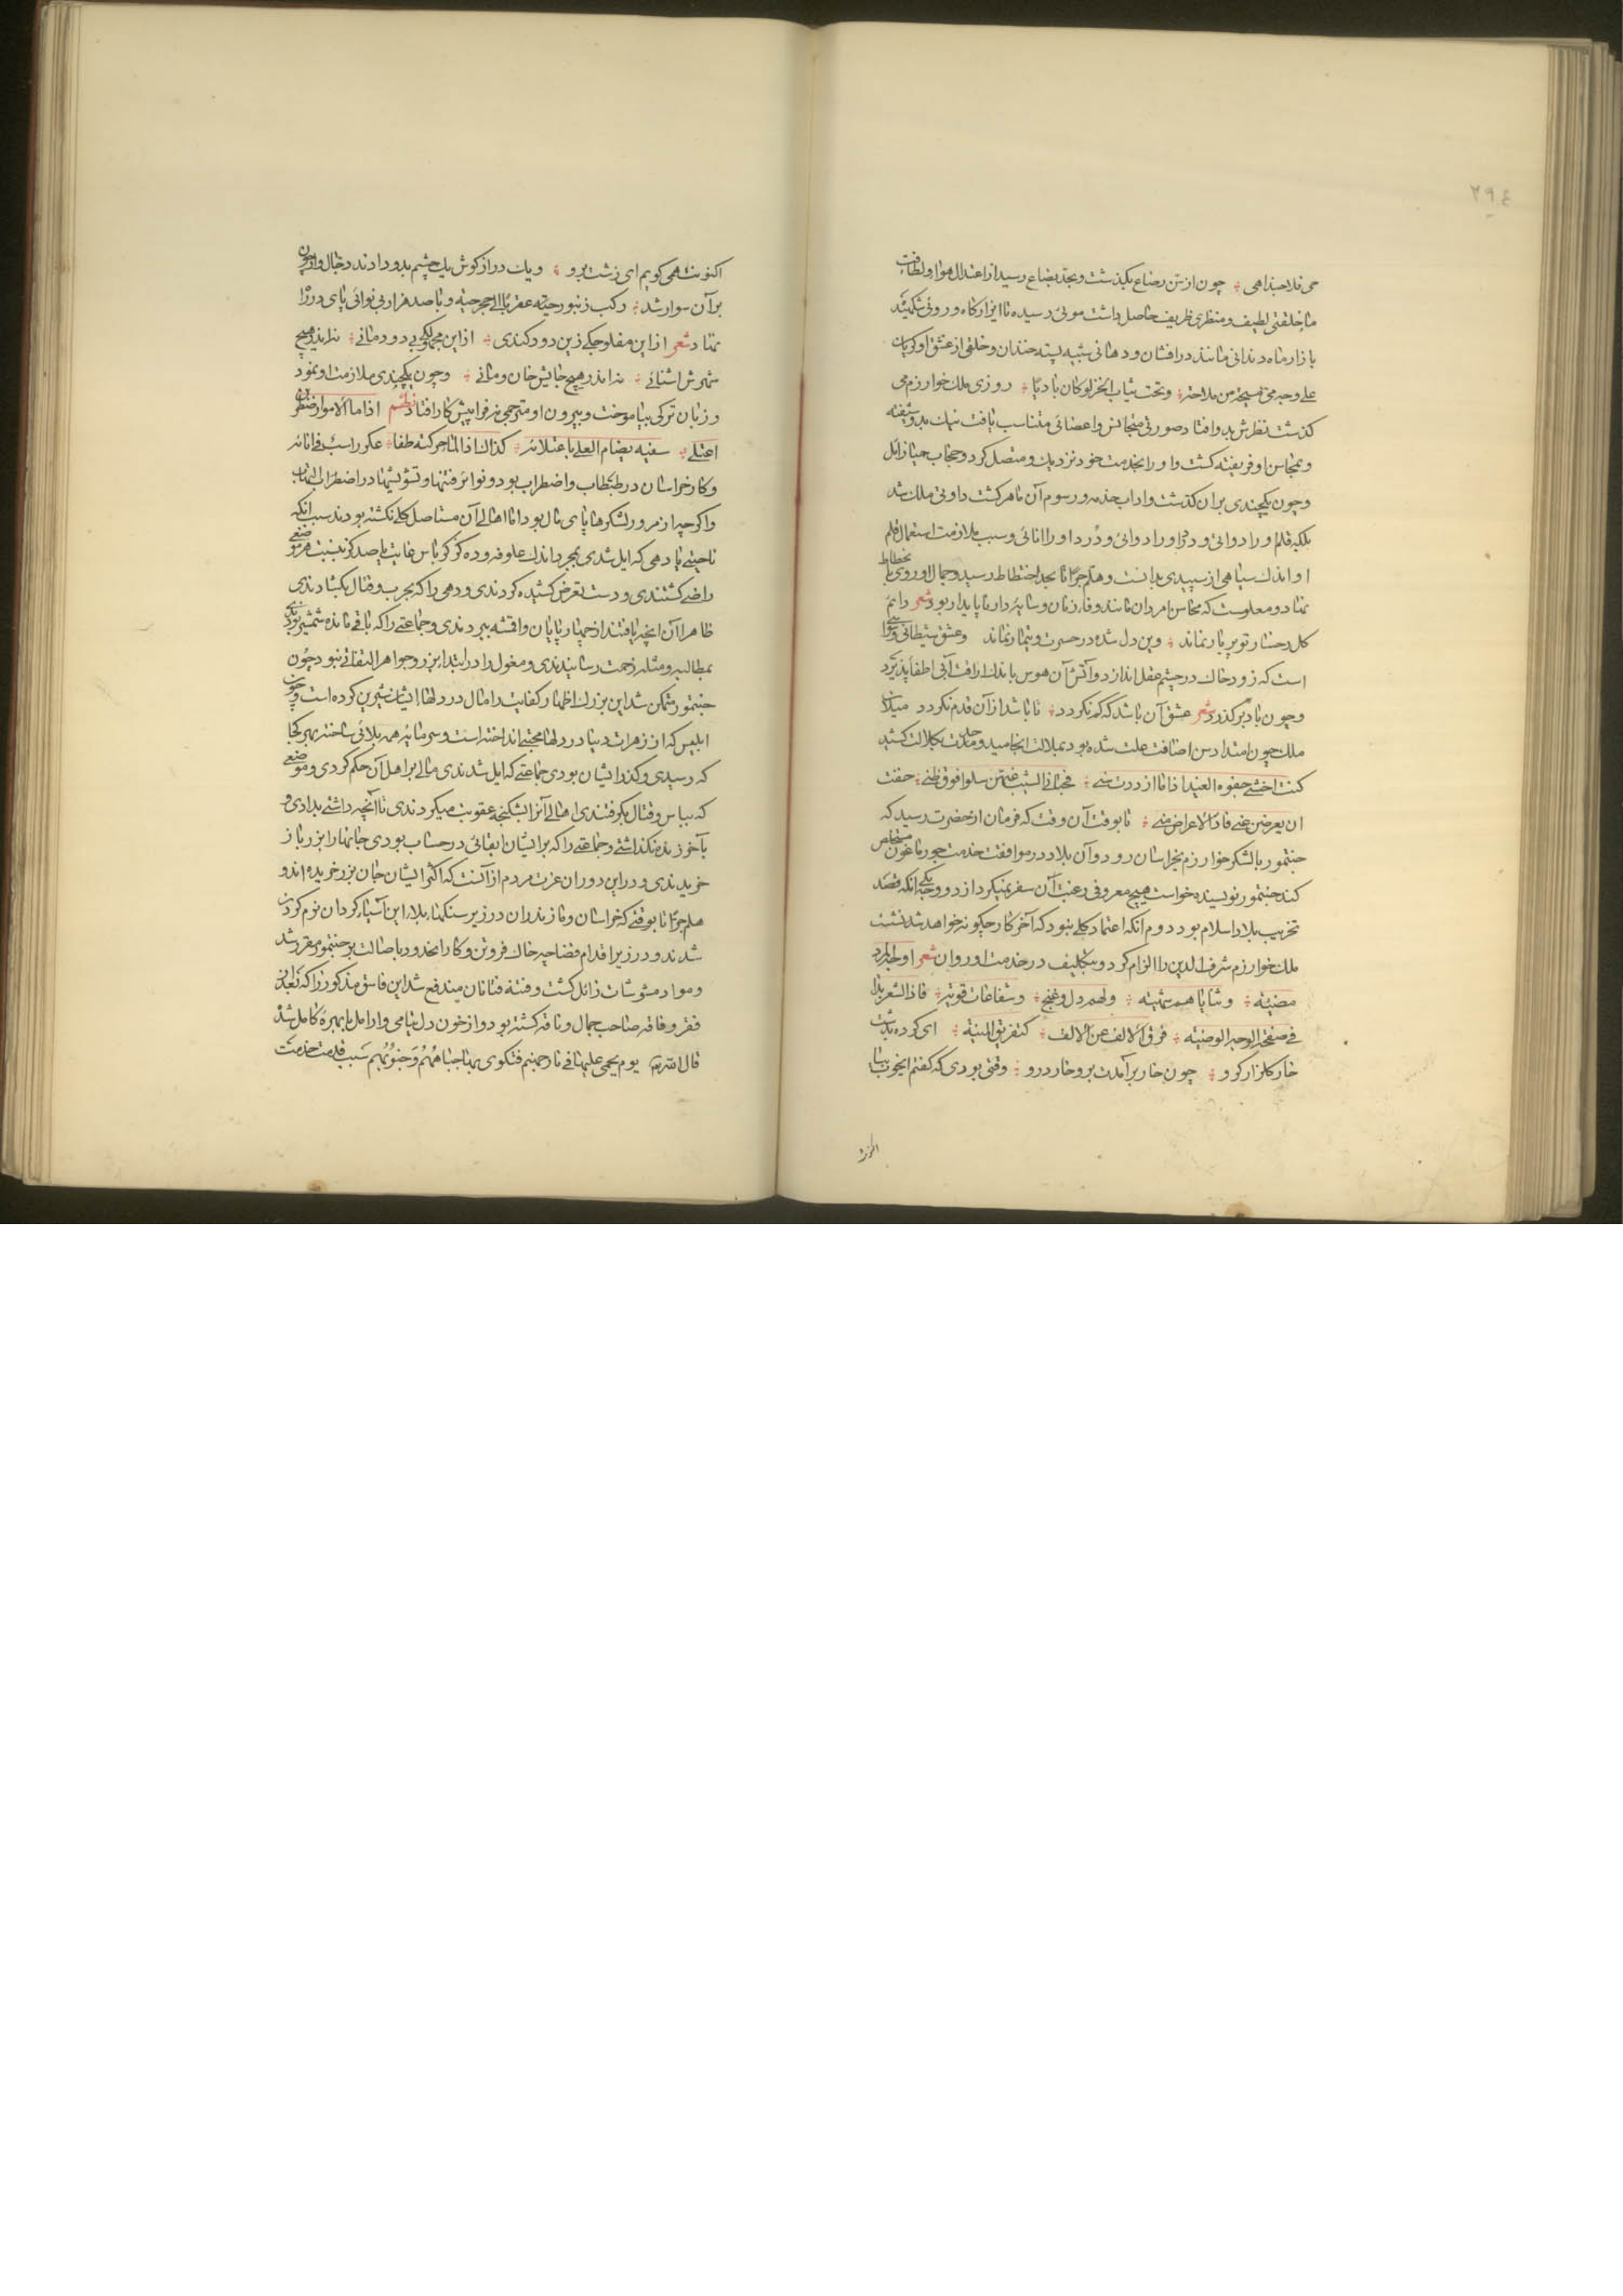 ۲۹٤
چون از سن رضاع بگذشت و بحد بضاع رسید از اعتدال هوا و لطافت
ما خلقتی لطیف و منظری ظریف حاصل داشت موئی رسیده تا ایزارکاه و روئی شکننده
بازار ماه دندانی مانند در افشان و دهانی شبیه پسته خندان و خلقی از عشق او کریان
علی وجه می مسیحة من ملاحة ؞ وتحت ثیاب الخز لو کان بادیا ؞ روزی ملک خوارزم می
کذشت نظرش بدو افتاد صورتی متجانس و اعضائی متناسب یافت نیک بدو شیفته
و بمحاسن او فریفته کشت و او را بخدمت خود نزدیک و متصل کرد و حجاب حیا زایل
و چون یکچندی بران کذشت و اداب خدمه و رسوم آن ماهر کشت دواتی ملک شد
بلکه قلم او را دواتی و در او را دوائی و درد او را اناثی و سبب ملازمت استعمال قلم
او اندک سیاهی از سپیدی بدانست و هلم جرا تا بحد اختطاط رسید و جمال او روی بانحطاط
نهاد و معلومست که محاسن امردان مانند وفاء زنان و سایه دار ناپایدار بود شعر دایم
کل رخسار تو پر بار نماند ؞ وین دل شده در حسرت و تیمار نماند وعشق شیطانی
است که زود خاک در چشم عقل اندازد و آتش آن هوس باندک رافت آبی اطفا پذیرد
و چون باد بر کذرد شعر عشق آن باشد که کم نکردد ؞ تا باشد از آن قدم نکردد میلان
ملک چون امتداد سن اضافت علت شده بود بملالت انجامید و حدت بکلالت کشید
کنت اخشی جفوه الغید اذا ما ازددت سنی ؞ فجبانی الشیب عنهن سلوا فوق ظنی ؞ خفت
ان یعرضن عنی فاذا الاعراض منی ؞ تا بوقت آن وقت که فرمان از حضرت رسید که
جنتمور با لشکر خوارزم بخراسان رود و آن بلاد در موافقت خدمت جورماغون مستخلص
کند جنتمور نویسنده خواست هیچ معروفی رغبت آن سفر نمیکرد از دو وجه یکی انکه قصد
تخریب بلاد اسلام بود دوم انکه اعتماد کلی نبود که آخر کار چکونه خواهد شد نشست
ملک خوارزم شرف الدین را الزام کرد و بتکلیف در خدمت او روان شعر اوجه المرد
مضیئة ؞ وثنایاهم شهیة ؞ ولهم دل وغنج ؞ وشفاعات قویة ؞ فاذا الشعر بدا
فی صفحة الوجه الوضیئة ؞ فرق الالف عن الالف ؞ کتفریق المنیة ؞ ای کرده بدت
خار کلزار کرو ؞ چون خار برآمدت برو خار درو ؞ وقتی بودی که کفتم ای خوب بیا
اکنونت همی کویم ای زشت برو ؞ ویک دراز کوش یک چشم بدو دادند دجال وار چون
بر آن سوار شد ؞ رکب زنبور حیته عقربا الی جحر حیة و با صد هزار بی نوائی پای در راه
نهاد شعر از این مفلوجکی زین دود کندی ؞ از این مجهولکی بی دودمانی ؞ نداند هیچ
شهرش اشنائی ؞ نداند هیچ جایش خان و مانی ؞ و چون یکچندی ملازمت او نمود
و زبان ترکی بیاموخت و بیرون او مترجمی نه فرا پیش کار افتاد نظم اذا ما الامور اضطربن
اعتلی ؞ سفیه یضام العلی باعتلائه ؞ کذاک اذا الماء حرکته طفا ؞ عکر راسب فی انائه
و کار خراسان در طبطاب و اضطراب بود و نوائر فتنها و تشویشها در اضطرام و التهاب
و اکرچه از مرور لشکرها پای مال بود اما اهالی آن مستاصل کلی نکشته بودند سبب انکه
ناحیتی یا دهی که ایل شدی بمجرد اندک علوفه و ده کز کرباس غایت یا صد کز بنسبت هر موضعی
راضی کشتندی و دست تعرض کشیده کردندی و دهی را که بحرب و قتال بکشادندی
ظاهرا آن انچه یافتند از چهارپایان و اقمشه ببردندی و جماعتی را که باقی مانده شمشیر بودندی
بمطالبه و مثله زحمت رسانیدندی و مغول را در ابتدا بزر و جواهر التفاتی نبود چون
جنتمور متمکن شد این بزرک اظهار کفایت را مال در دلهاء ایشان شیرین کرده است و چون
ابلیس که از زهرات دنیا در دلها محبتی انداخته است و سرمایه همه بلائی ساخته بهر کجا
که رسیدی و کذر ایشان بودی جماعتی که ایل شدندی مالی بر اهل آن حکم کردی و موضعی
که بباس و قتال بکرفتندی اهالی آنرا بشکنجه عقوبت میکردندی تا آنچه داشتی بدادی و
بآخر زنده نکذاشتی و جماعتی را که بر ایشان ابقائی در حساب بودی جانها را بزر باز
خریدندی و در این دوران عزت مردم از آنست که اکثر ایشان جان بزر خریده اند و
هلم جرا تا بوقتی که خراسان و مازندران در زیر سنکهاء بلاء این آسیاء کردان نرم کردان
شدند و در زیر اقدام فضاحیه خاک فروتن و کار انحدود باصالت بر جنتمور مقرر شد
و مواد مشوشات زائل کشت و فتنة فتانان مندفع شد این فاسق مذکور را که بعد از
فقر و فاقه صاحب جمال و ناقه کشته بود و از خون دل یتامی و ارامل با بهره کامل شد
قال الله یوم یحمی علیها فی نار جهنم فتکوی بها جباههم وجنوبهم سبب قدمت خدمت